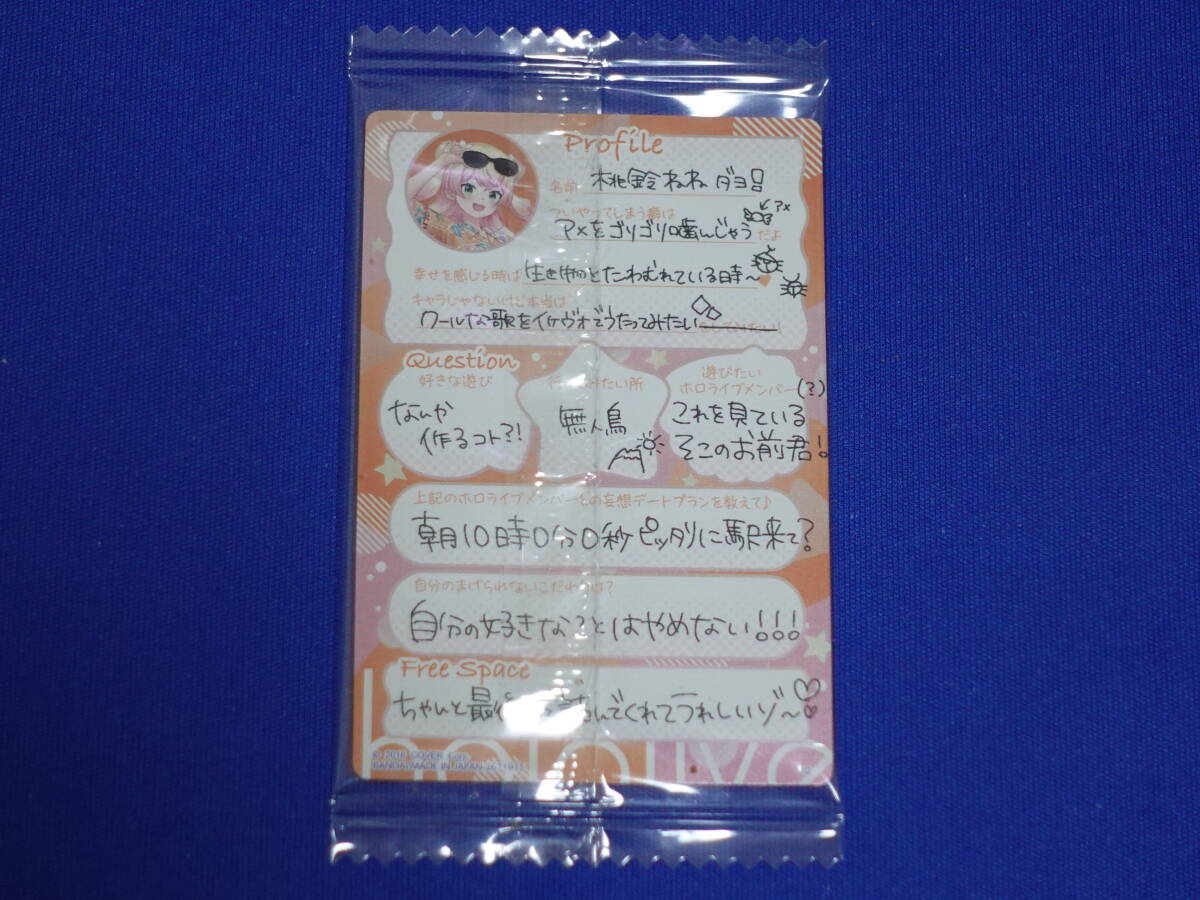 Profile
名前 桃鈴ねね ダヨ!
ついやってしまう癖は
←アメ
アメをゴリゴリ噛んじゃう だよ
幸せを感じる時は 生き物とたわむれている時〜
キャラじゃないけど本当は
クールな歌をイケヴォでうたってみたい
Question
好きな遊び
なんか
作るコト?!
行ってみたい所
無人島
遊びたい
ホロライブメンバー(?)
これを見ている
そこのお前君!
上記のホロライブメンバーとの妄想デートプランを教えて♪
朝10時0分0秒ピッタリに駅来て?
自分のまげられないこだわりは?
自分の好きなことはやめない!!!
Free Space
ちゃんと最後まで読んでくれてうれしいゾ〜♡
© 2016 COVER Corp.
BANDAI MADE IN JAPAN
hololive